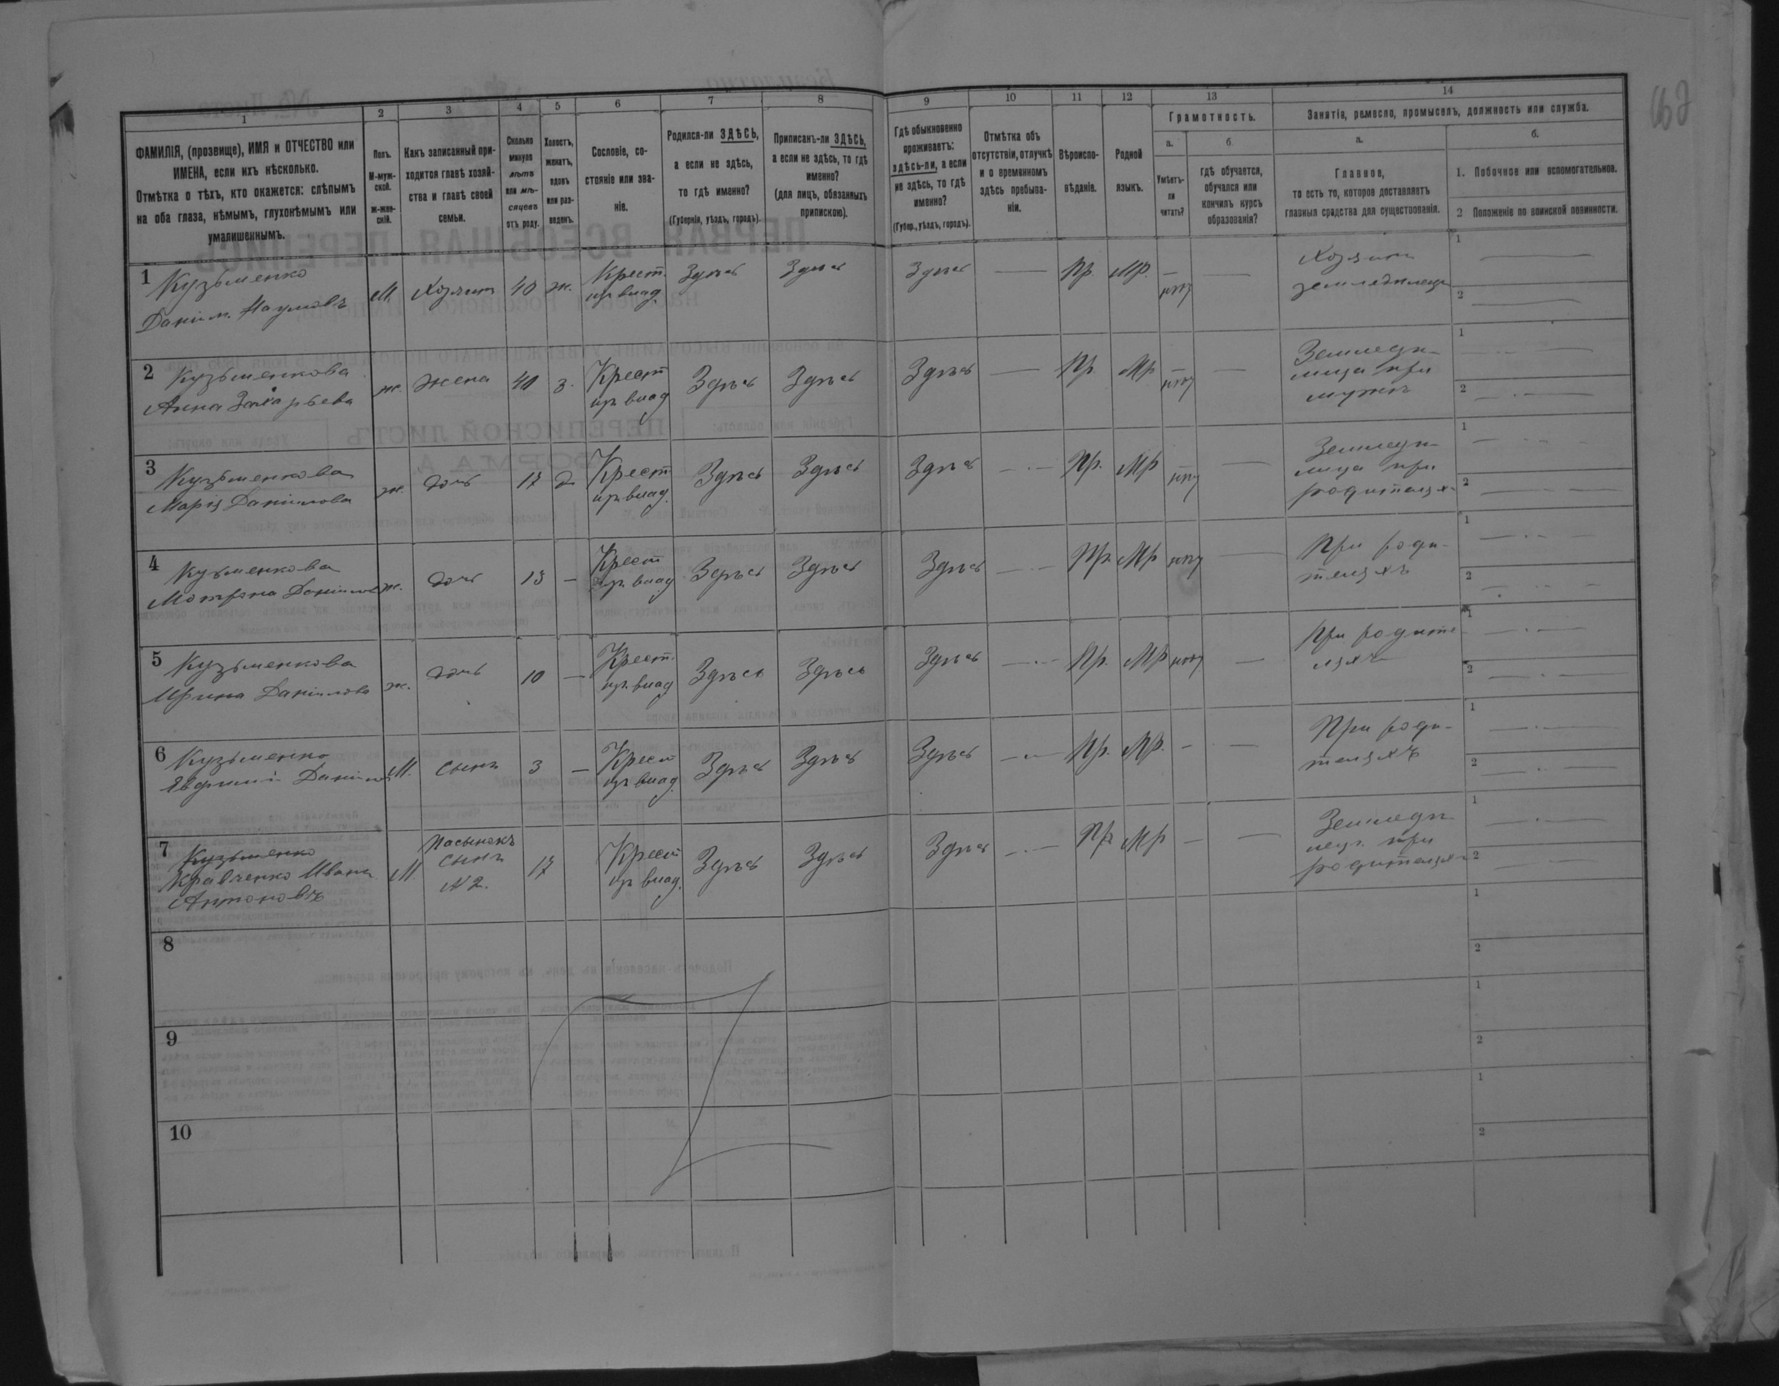 1
2
3
4
5
6
7
8
9
10
11
12
13
14
ФАМИЛІЯ, (прозвище), ИМЯ и ОТЧЕСТВО или
ИМЕНА, если ихъ нѣсколько.
Отмѣтка о тѣхъ, кто окажется: слѣпымъ
на оба глаза, нѣмымъ, глухонѣмымъ или
умалишеннымъ.
Полъ.
М-муж-
ской.
Ж-жен-
скій.
Какъ записанный при-
ходится главѣ хозяй-
ства и главѣ своей
семьи.
Сколько
минуло
лѣтъ
или мѣ-
сяцевъ
отъ роду.
Холостъ,
женатъ,
вдовъ
или раз-
веденъ.
Сословіе, со-
стояніе или зва-
ніе.
Родился-ли ЗДѢСЬ,
а если не здѣсь,
то гдѣ именно?
(Губернія, уѣздъ, городъ).
Приписанъ-ли ЗДѢСЬ,
а если не здѣсь, то гдѣ
именно?
(для лицъ, обязанныхъ
припискою).
Гдѣ обыкновенно
проживаетъ:
здѣсь-ли, а если
не здѣсь, то гдѣ
именно?
(Губер., уѣздъ, городъ).
Отмѣтка объ
отсутствіи, отлучкѣ
и о временномъ
здѣсь пребыва-
ніи.
Вѣроиспо-
вѣданіе.
Родной
языкъ.
Грамотность.
а.
Умѣетъ-
ли
читать?
б.
гдѣ обучается,
обучался или
кончилъ курсъ
образованія?
Занятіе, ремесло, промыселъ, должность или служба.
а.
Главное,
то есть то, которое доставляетъ
главныя средства для существованія.
б.
1. Побочное или вспомогательное.
2 Положеніе по воинской повинности.
1 Кузьменко
Данил. Наумовъ
М.
Хозяин
40
ж.
Крест.
из влад.
Здѣсь
Здѣсь
Здѣсь
Пр.
МР.
нѣт
Хозяин
земледѣлец
1
2
2 Кузьменкова
Анна Захарьева
ж.
жена
40
з.
Крест
из влад
Здѣсь
Здѣсь
Здѣсь
Пр
Мр
нѣт
Земледѣ-
лица при
мужѣ
1
2
3 Кузьменкова
Марія Данилова
ж.
дочь
17
д
Крест
из влад.
Здѣсь
Здѣсь
Здѣсь
Пр.
Мр
нѣт
Земледѣ-
лица при
родителях
1
2
4 Кузьменкова
Мотрона Данилов
ж.
дочь
13
Крест
из влад
Здѣсь
Здѣсь
Здѣсь
Пр
Мр
нѣт
При роди-
телях
1
2
5 Кузьменкова
Ирина Данилова
ж.
дочь
10
Крест.
из влад
Здѣсь
Здѣсь
Здѣсь
Пр.
МР
нѣт
При родите-
лях
1
2
6 Кузьменко
Евфимій Данилов
М.
сынъ
3
Крест
из влад.
Здѣсь
Здѣсь
Здѣсь
Пр.
Мр.
При роди-
телях
1
2
7 Кузьменко
Кравченко Иванъ
Антоновъ
М
Пасынокъ
сынъ
N2.
17
Крест
из влад.
Здѣсь
Здѣсь
Здѣсь
Пр
Мр
Земледѣ-
лец при
родителях
1
2
8
1
2
9
1
2
10
1
2